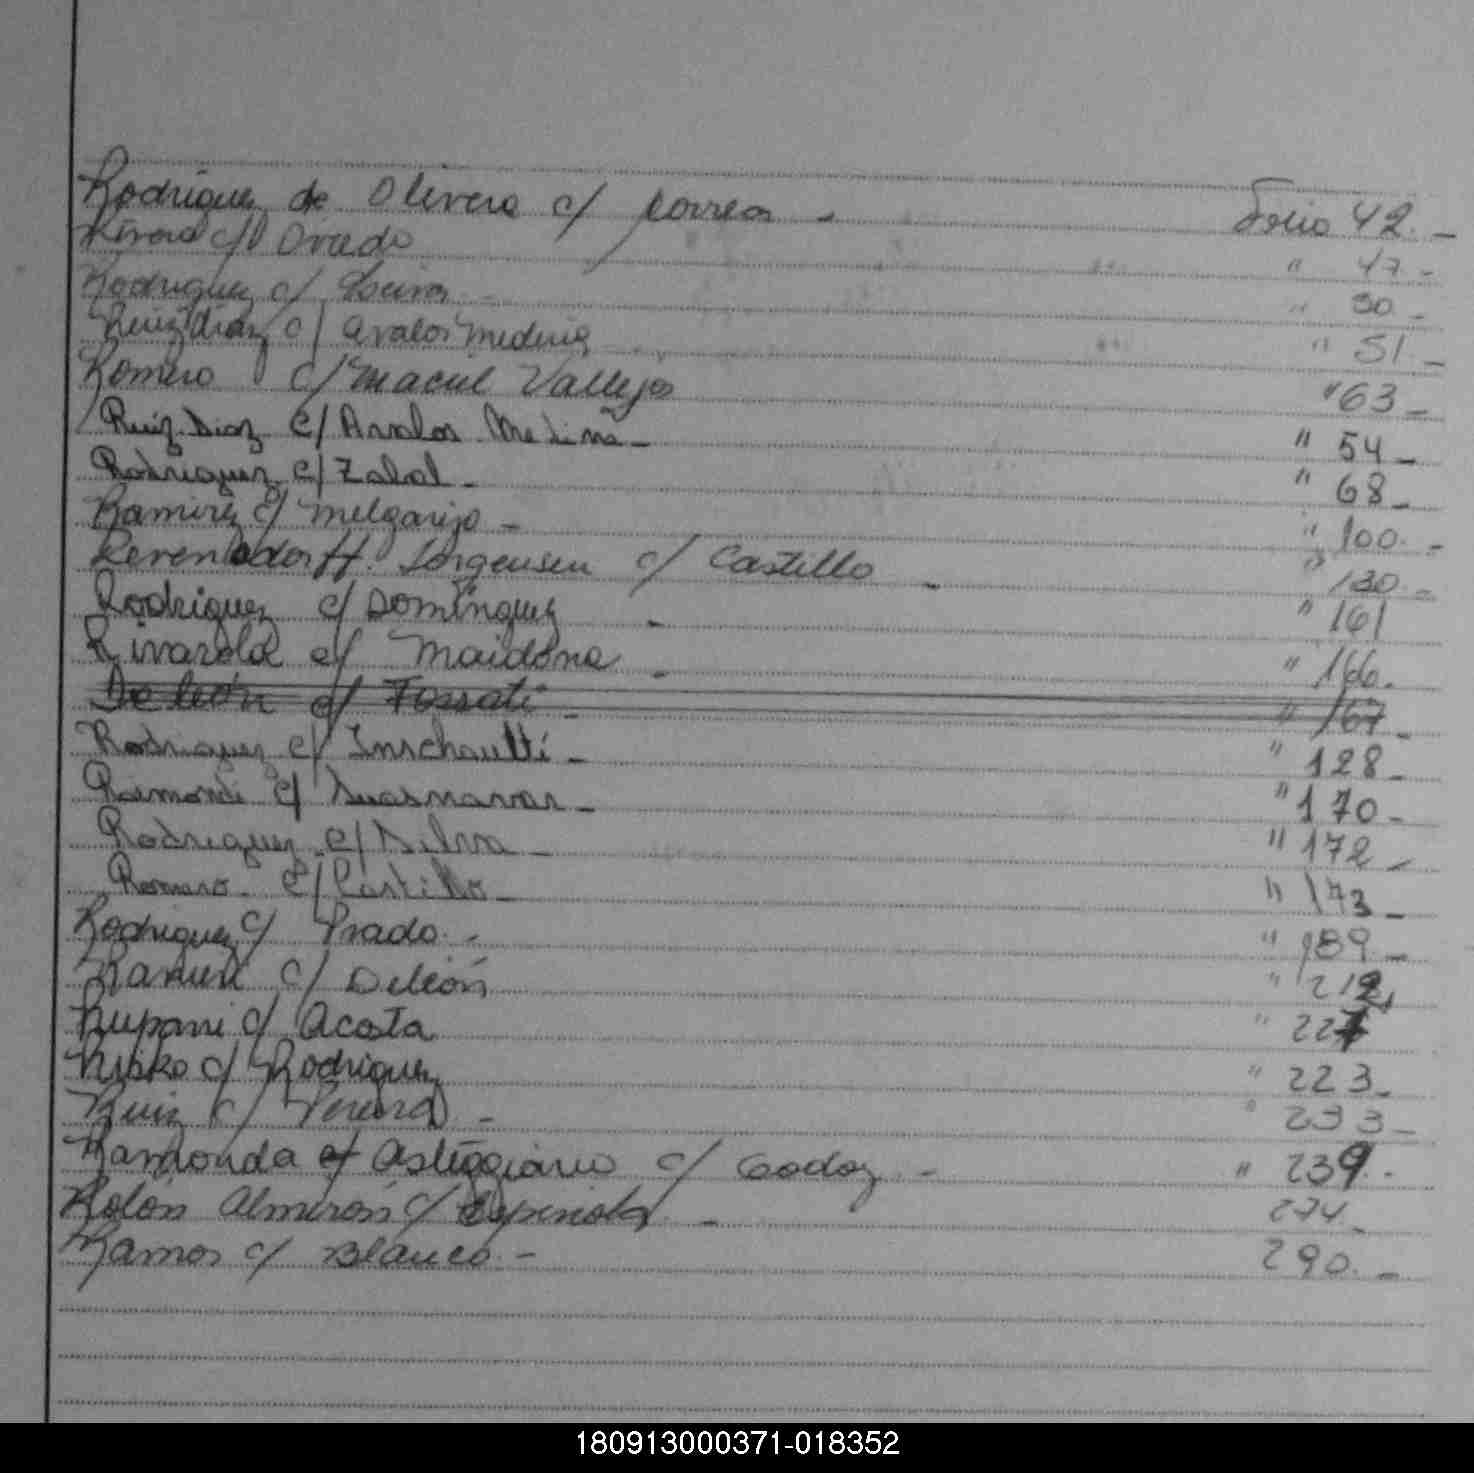 Rodriguez de Olivera c/ Correa - Folio 42.-
Rivera c/ Oviedo " 47.-
Rodriguez c/ Loeiva - " 50.-
Ruiz Diaz c/ Avalos Medina " 51.-
Romero c/ Macul Vallejos " 63-
Ruiz Diaz c/ Avalos Medina- " 54-
Rodriguez c/ Zabal- " 68-
Ramirez c/ Melgarejo - " 100.-
Jorgensen c/ Castillo - " 130.-
Rodriguez c/ Dominguez - " 161
Rivarola c/ Maidana - " 166.
De León c/ Fossati - " 167-
Rodriguez c/ - " 128-
Raimondi c/ Suasnavar- " 170-
Rodriguez c/ Silva - " 172-
Romero c/ Castillo- " 173-
Rodriguez c/ Prado.- " 189-
c/ De León " 212,
c/ Acosta " 227
c/ Rodriguez " 223-
Ruiz c/ Pereira - " 233-
Ramonda c/ Godoy - " 239.-
Rolón Almirón c/ Espinola - 274.-
Ramos c/ Blanco.- 290.-
180913000371-018352